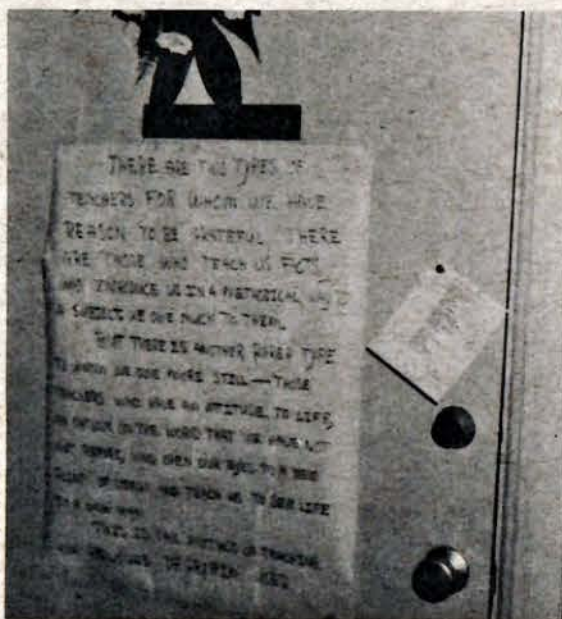 THERE ARE TWO TYPES OF
TEACHERS FOR WHOM WE HAVE
REASON TO BE GRATEFUL. THERE
ARE THOSE WHO TEACH US FACTS,
AND INTRODUCE US IN A METHODICAL WAY TO
A SUBJECT WE OWE MUCH TO THEM.
BUT THERE IS ANOTHER RARER TYPE
TO WHOM WE OWE MORE STILL — THOSE
TEACHERS WHO HAVE AN ATTITUDE TO LIFE,
AN ON THE WORLD THAT WE HAVE NOT
MET BEFORE, WHO OPEN OUR EYES TO A NEW
AND TEACH US TO SEE LIFE
IN A NEW WAY.
THIS IS THE OF TEACHING